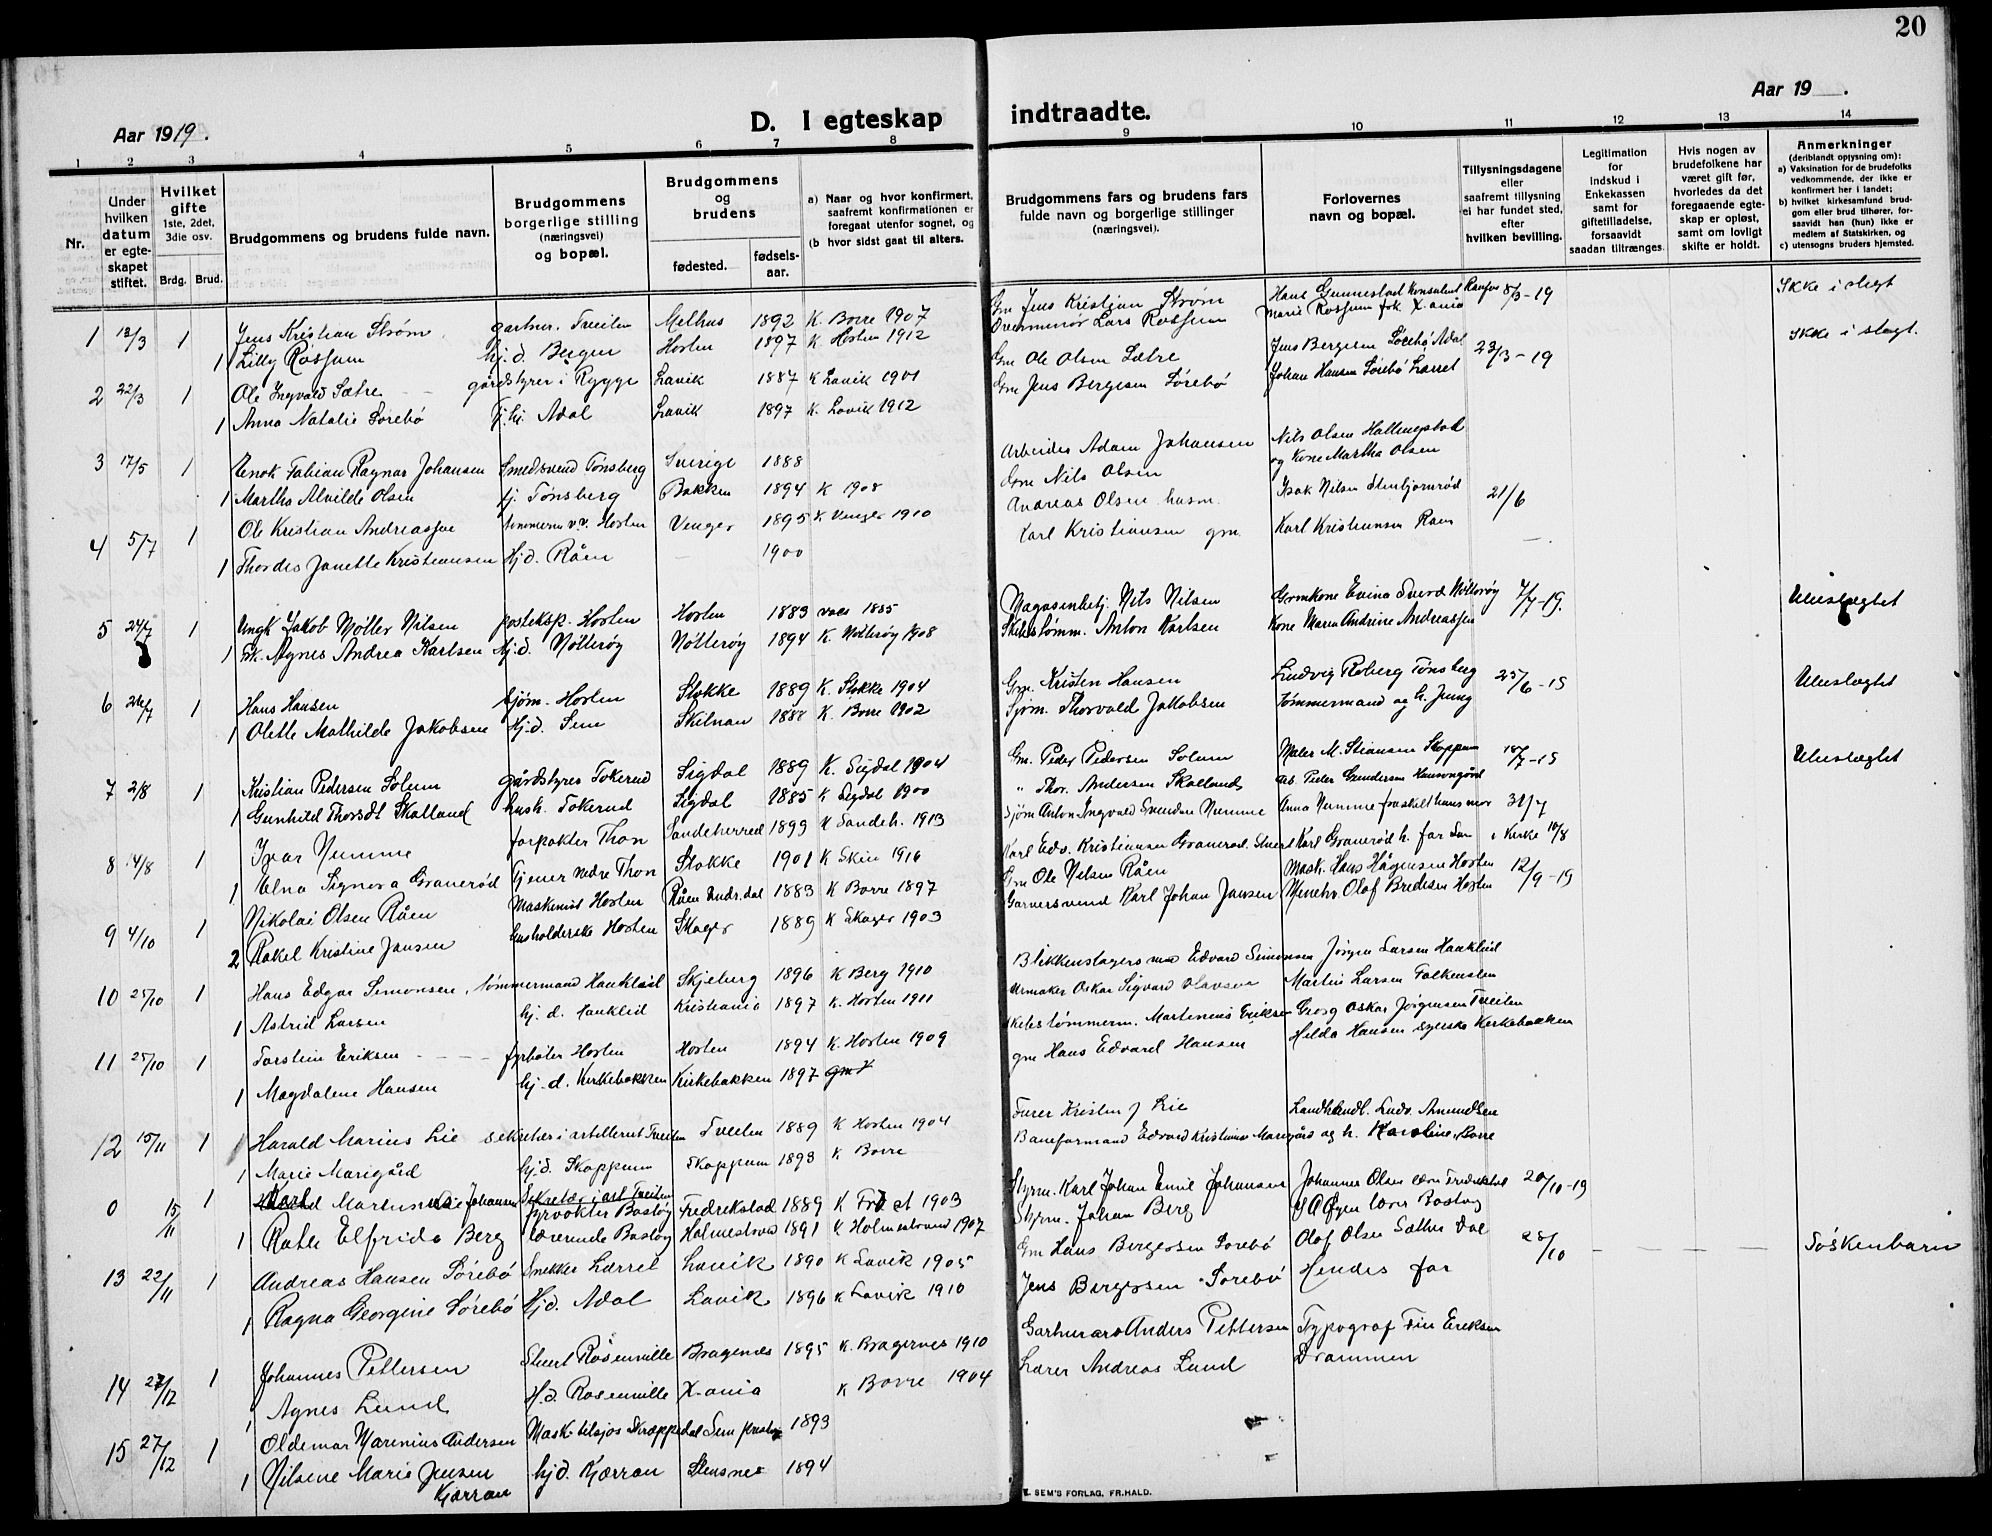 20
Aar 1919.
D. I egteskap indtraadte.
Aar 19 .
1 2 3 4 5 6 7 8 9 10 11 12 13 14
Nr.
Under hvilken datum er egteskapet stiftet.
Hvilket gifte 1ste, 2det, 3die osv.
Brdg. Brud.
Brudgommens og brudens fulde navn.
Brudgommens borgerlige stilling (næringsvei) og bopæl.
Brudgommens og brudens
fødested.
fødselsaar.
a) Naar og hvor konfirmert, saafremt konfirmationen er foregaat utenfor sognet, og
(b hvor sidst gaat til alters.
Brudgommens fars og brudens fars fulde navn og borgerlige stillinger (næringsvei).
Forlovernes navn og bopæl.
Tillysningsdagene eller saafremt tillysning ei har fundet sted, efter hvilken bevilling.
Legitimation for Indskud i Enkekassen samt for giftetilladelse, forsaavidt saadan tiltrænges.
Hvis nogen av brudefolkene har været gift før, hvorledes da det foregaaende egteskap er opløst, samt om lovligt skifte er holdt.
Anmerkninger (deriblandt opjysning om):
a) Vaksination for de brudefolks vedkommende, der ikke er konfirmert her i landet;
b) hvilket kirkesamfund brudgom eller brud tilhører, forsaavidt han (hun) ikke er medlem af Statskirken, og
c) utensogns bruders hjemsted.
1 13/3 1 Jens Kristian Strøm gartner. Tveiten Melhus 1892 K. Borre 1907 Gm Jens Kristian Strøm Hans Gunnestad konsulent 8/3-19 Ikke i slegt
1 Lilly Rossum hj.d. Bergen Horten 1897 K. Horten 1912 Lars Rossum Marie Rossum frk X.ania
2 22/3 1 Ole Ingvald Sætre gårdstyrer i Rygge Lavik 1887 K Lavik 1901 Gm Ole Olsen Sætre Jens Bergesen Sørebø Adal 23/3-19 Ikke i slegt.
1 Anna Natalie Sørebø hj. Adal Lavik 1897 K. Lavik 1912 Gm Jens Bergesen Sørebø Johan Hansen Sørebø Lærret
3 17/5 1 Enok Fabian Ragnar Johansen Smedsvend Tønsberg Sverige 1888 Arbeider Adam Johansen Nils Olsen Hallingstad
1 Martha Alvilde Olsen tj. Tønsberg Bakken 1894 K 1908 Gm Nils Olsen og Kone Martha Olsen
4 5/7 1 Ole Kristian Andreassen Horten Venger 1895 K Venger 1910 Andreas Olsen husm. Isak Nilsen 21/6
1 Thordis Janette Kristiansen Hj.d. Råen — 1900 Karl Kristiansen gm. Karl Kristiansen Raen
5 24/7 1 Ungk Jakob Møller Nilsen posteksp. Horten Horten 1883 vacs 1885 Magasinbetj. Nils Nilsen Grmkone Nøtterøy 7/7-19. Ubeslægtet
1 Frk. Agnes Andrea Karlsen hj.d. Nøtterøy Nøtterøy 1894 K. Nøtterøy 1908 Skibstømm. Anton Karlsen Kone Maren Andrine Andreassen
6 26/7 1 Hans Hansen Sjøm. Horten Stokke 1889 K. Stokke 1904 Gm. Kristen Hansen Ludvig Roberg Tønsberg 25/6-19 Ubeslægtet
1 Olette Mathilde Jakobsen Hj.d. Sem 1888 K. Borre 1902 Sjøm. Thorvald Jakobsen Tømmermand
7 2/8 1 Kristian Pedersen Solum gårdstyrer Tokerud Sigdal 1889 K. Sigdal 1904 Gm. Peder Pedersen Solum Maler M. Stiansen Skoppum 18/7-19 Ubeslægtet
1 Gunhild Thorsdt Skalland hush. Tokerud Sigdal 1885 K Sigdal 1900 " Thor. Andersen Skalland Peder Gundersen
8 14/8 1 Ivar Numme forpakter Thon Sandeherred 1893 K Sandeh. 1913 Sjøm Anton Ingvald Svendsen Numme Anna Numme fraskilt hans mor 31/7
1 Elna Signora Granerød Tjener nedre Thon Stokke 1901 K Skien 1916 Karl Edv. Kristiansen Granerød. Karl Granerød h. far i Kirke 10/8
9 4/10 1 Nikolai Olsen Råen Maskinist Horten Råen Undr.dal 1883 K Borre 1897 Gm Ole Nilsen Råen Mask. Hans Hågensen Horten 12/9-19
2 Rakel Kristine Jansen Husholderske Horten Skoger 1889 K Skoger 1903 Garversvend Karl Johan Jansen Olaf Bredesen Horten
10 25/10 1 Hans Edgar Simonsen, tømmermand Hauklid Skjeberg 1896 K Berg 1910 Blikkenslagers Edvard Simonsen Jørgen Larsen Hauklid
1 Astrid Larsen hj. d. Hauklid Kristiania 1897 K. Horten 1911 Urmaker Oskar Sigvard Martin Larsen Falkensten
11 25/10 1 Torstein Eriksen fyrbøter Horten Horten 1894 K. Horten 1909 Skibstømmerm. Martinius Eriksen Georg Oskar Jørgensen Tveiten
1 Magdalene Hansen hj. d. Kirkebakken Kirkebakken 1897 gm Hans Edvard Hansen Hilda Hansen syerske Kirkebakken
12 15/11 1 Harald Marius Lie sekretær i artilleriet Tveiten Tveiten 1889 K Horten 1904 Furer Kristen J Lie Landhandl. Ludv. Amundsen
1 Marie Marigård hj.d. Skoppum Skoppum 1893 K Borre Baneformand Edvard Kristiansen Marigård og h. Karoline, Borre
0 15/11 1 Karl Johansen Sekretær i art Tveiten fyrvokter Bastøy Fredrikstad 1889 K Fr.st 1903 Styrm. Karl Johan Emil Johansen Johannes Olsen Fredrikstad 20/10-19
1 Ruth Elfrida Berg lærerinde Bastøy Holmestrand 1891 K Holmestrand 1907 Skpm. Johan Berg lærer Bastøy
13 22/11 1 Andreas Hansen Sørebø Snekker Lærret Lavik 1890 K Lavik 1905 Gm Hans Bergersen Sørebø Olof Olsen Sæther Dal 28/10 — — — — Søskenbarn
1 Ragna Georgine Sørebø Hj.d. Adal Lavik 1896 K Lavik 1910 Jens Bergersen Sørebø Hendes far
14 27/12 1 Johannes Pettersen Rosenville Bragenes 1895 K. Bragernes 1910 Anders Pettersen Typograf Eriksen
1 Agnes Lund H.d. Rosenville X-ania K Borre 1904 Lærer Andreas Lund Drammen
15 27/12 1 Oldemar Marenius Andersen Sem 1893
1 Nilsine Marie Jensen Kjærran hj.d. Kjærran Stensnes 1894
E. SEM'S FORLAG, FR.HALD.